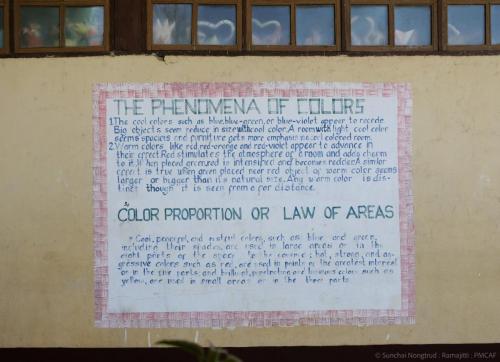 THE PHENOMENA OF COLORS
1. The cool colors such as blue, blue-green, or blue-violet appear to recede.
Big objects seem reduce in size with cool color. A room with light cool color
seems spacious and furniture gets more emphasis in cool colored room.
2. Warm colors like red, red-orange and red-violet appear to advance in
their effect. Red stimulates the atmosphere of a room and adds charm
to it. When placed green, red is intensified and becomes redder. A similar
effect is true when green placed near red object or warm color seems
larger or bigger than it's natural size. Any warm color is dis-
tinct though it is seen from a far distance.
COLOR PROPORTION OR LAW OF AREAS
Cool, peaceful, and restful colors, such as blue and green,
including their are used in large areas or in the
eight parts of the space to be covered; hot, strong, and ag-
gressive colors such as red, are used in points of the greatest interest
or in the five parts; and brilliant, penetrating and luminous colors such as
yellow, are used in small areas or in the three parts.
© Sunchai Nongtrud : Ramajitti : PMCAF